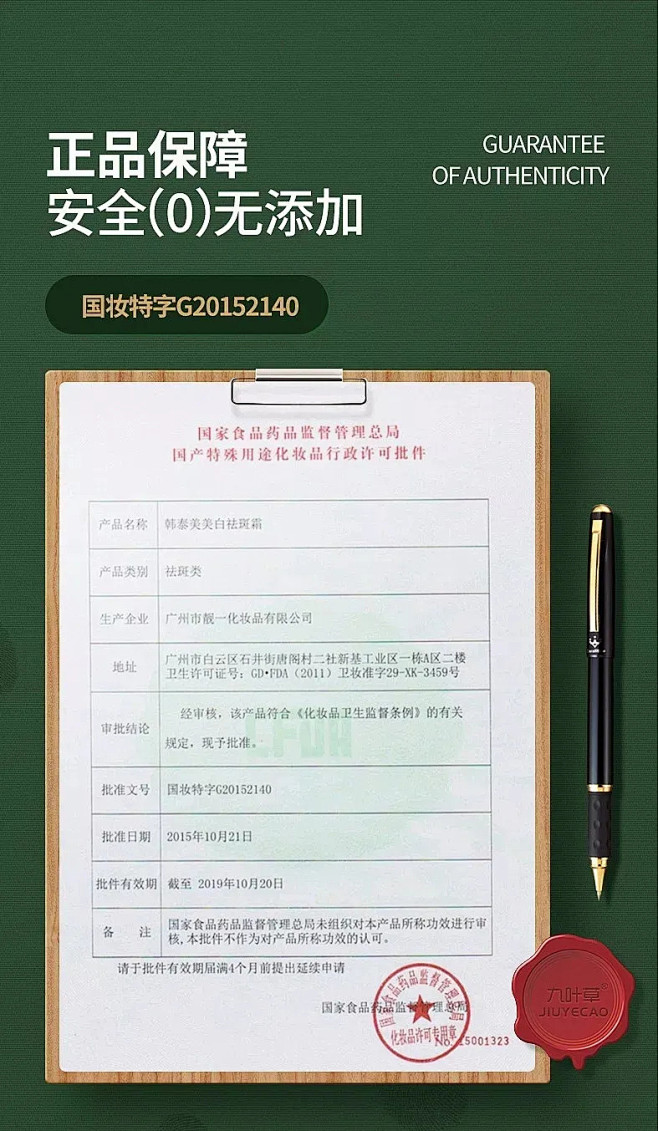 正品保障
安全(0)无添加
GUARANTEE
OF AUTHENTICITY
国妆特字G20152140
国家食品药品监督管理总局
国产特殊用途化妆品行政许可批件
产品名称 韩泰美美白祛斑霜
产品类别 祛斑类
生产企业 广州市靓一化妆品有限公司
地址 广州市白云区石井街唐阁村二社新基工业区一栋A区二楼
卫生许可证号：GD•FDA（2011）卫妆准字29-XK-3459号
审批结论 经审核，该产品符合《化妆品卫生监督条例》的有关
规定，现予批准。
批准文号 国妆特字G20152140
批准日期 2015年10月21日
批件有效期 截至 2019年10月20日
备 注 国家食品药品监督管理总局未组织对本产品所称功效进行审
核,本批件不作为对产品所称功效的认可。
请于批件有效期届满4个月前提出延续申请
国家食品药品监督管理总局
国家食品药品监督管理总局
化妆品许可专用章
NO.15001323
九叶草®
JIUYECAO